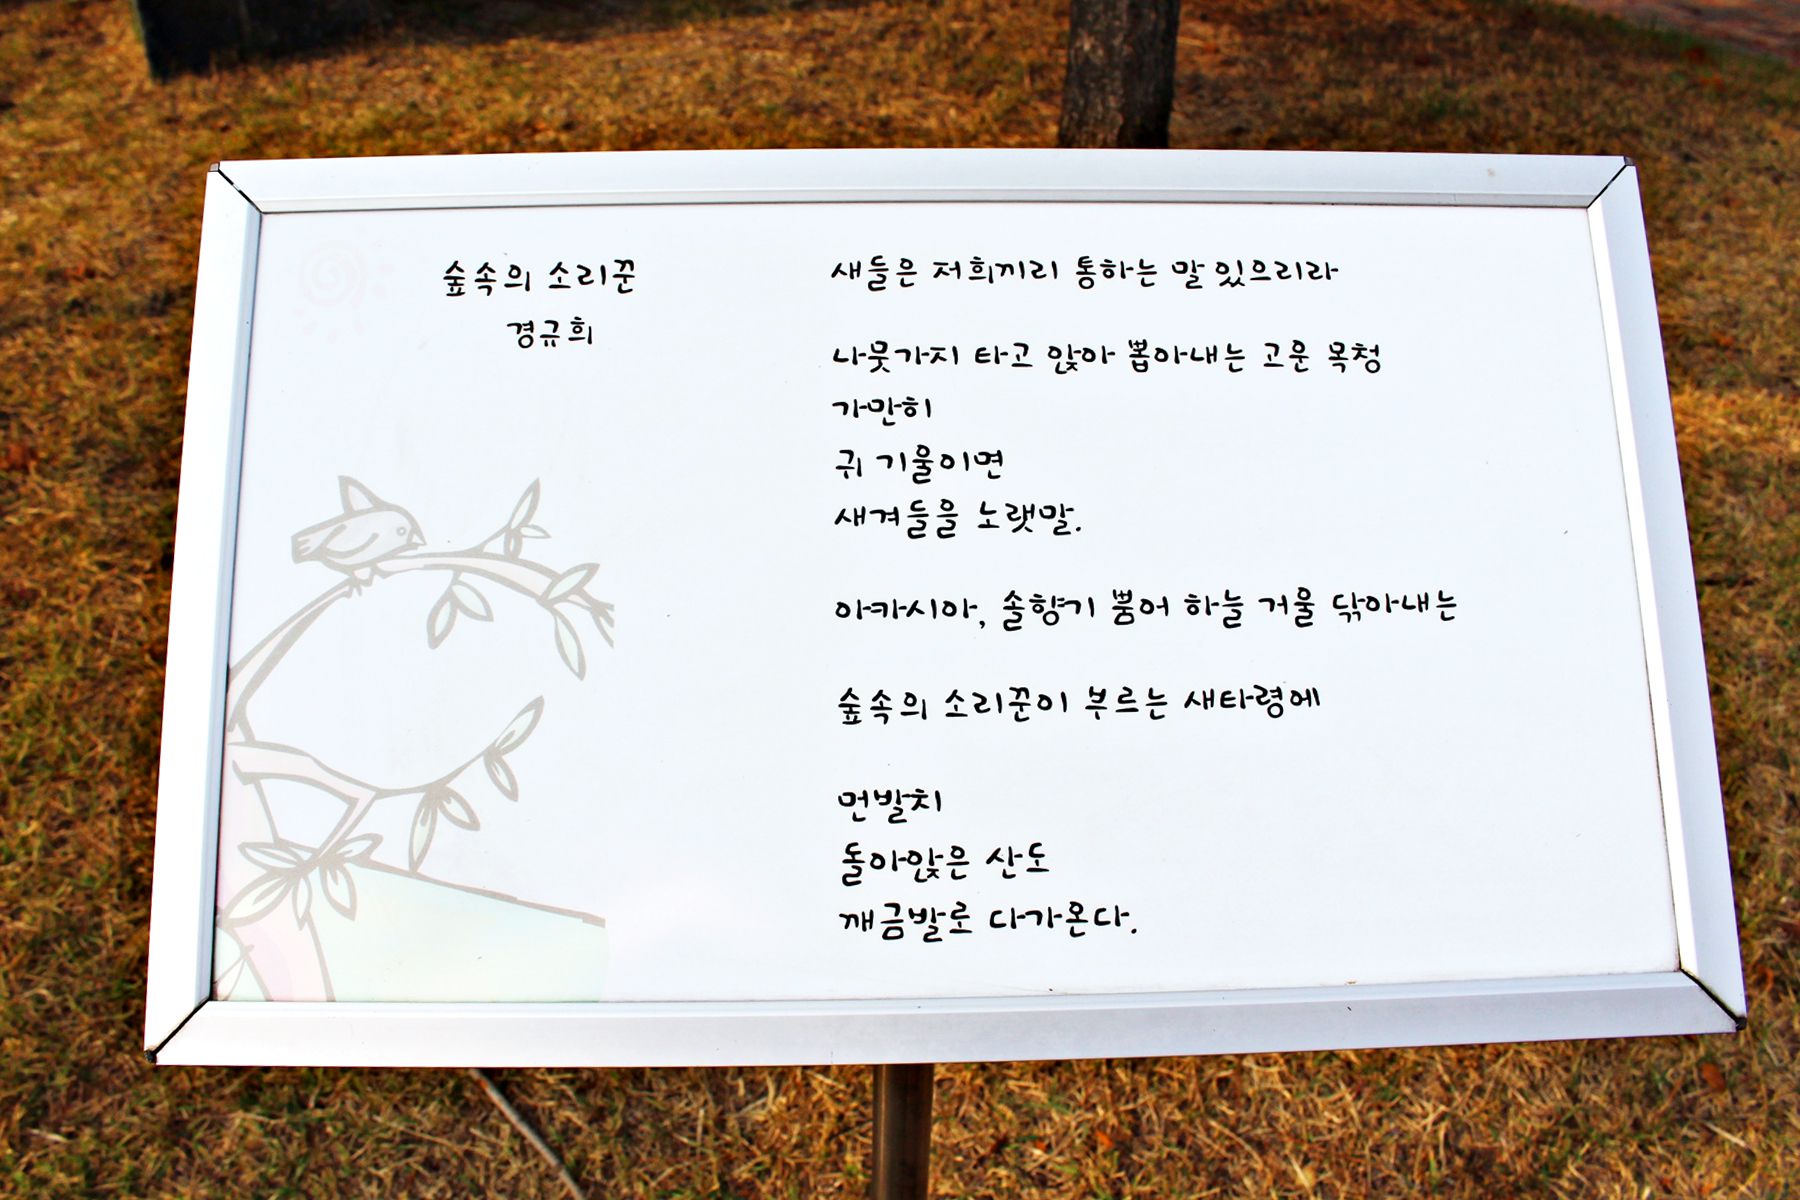 숲속의 소리꾼
경규희
새들은 저희끼리 통하는 말 있으리라
나뭇가지 타고 앉아 뽑아내는 고운 목청
가만히
귀 기울이면
새겨들을 노랫말.
아카시아, 솔향기 뿜어 하늘 거울 닦아내는
숲속의 소리꾼이 부르는 새타령에
먼발치
돌아앉은 산도
깨금발로 다가온다.